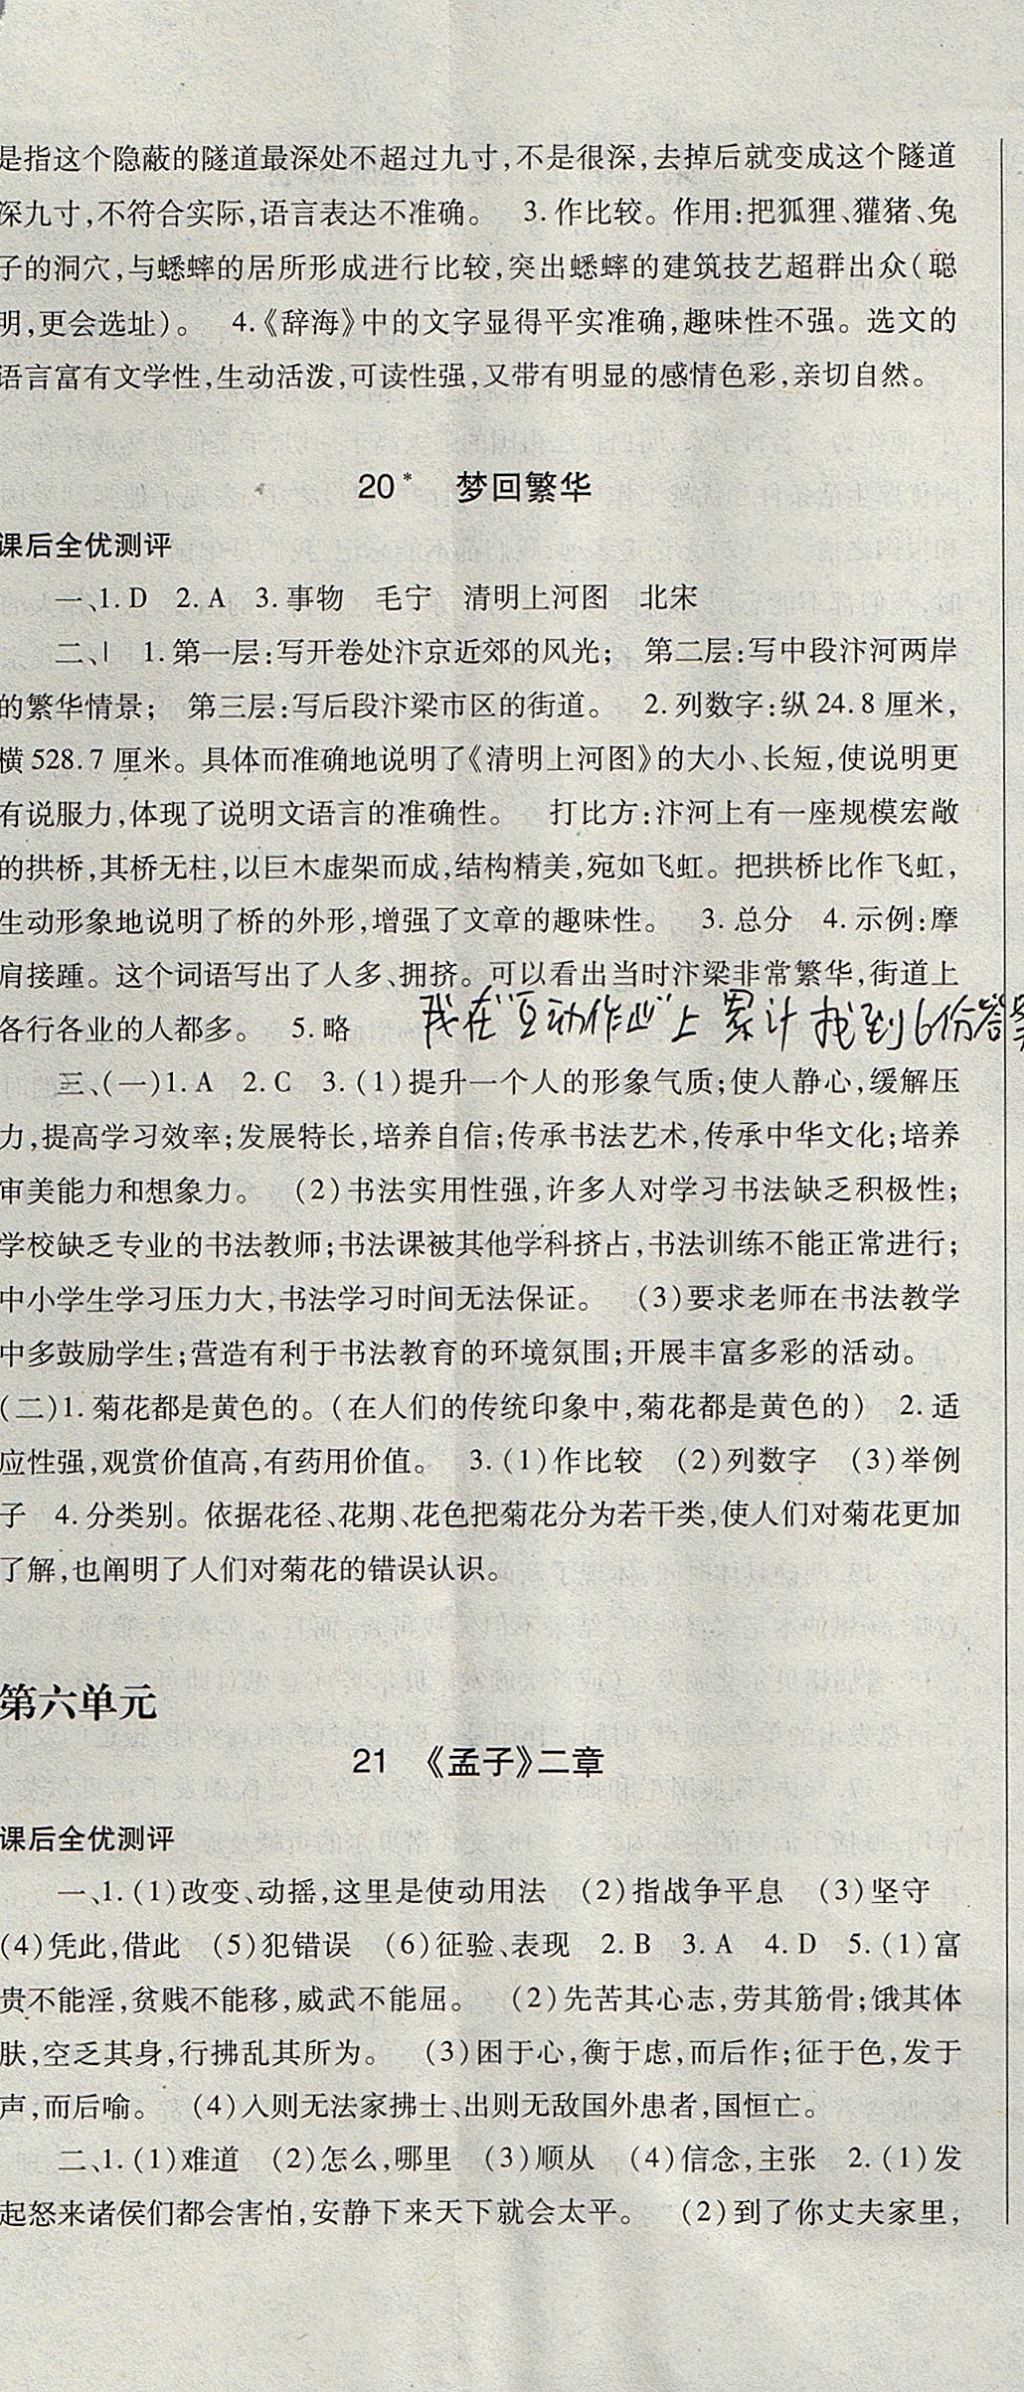 是指这个隐蔽的隧道最深处不超过九寸,不是很深,去掉后就变成这个隧道
深九寸,不符合实际,语言表达不准确。 3.作比较。作用:把狐狸、獾猪、兔
子的洞穴,与蟋蟀的居所形成进行比较,突出蟋蟀的建筑技艺超群出众(聪
明,更会选址)。 4.《辞海》中的文字显得平实准确,趣味性不强。选文的
语言富有文学性,生动活泼,可读性强,又带有明显的感情色彩,亲切自然。
20* 梦回繁华
课后全优测评
一、1.D 2.A 3.事物 毛宁 清明上河图 北宋
二、| 1.第一层:写开卷处汴京近郊的风光; 第二层:写中段汴河两岸
的繁华情景; 第三层:写后段汴梁市区的街道。 2.列数字:纵24.8厘米,
横528.7厘米。具体而准确地说明了《清明上河图》的大小、长短,使说明更
有说服力,体现了说明文语言的准确性。 打比方:汴河上有一座规模宏敞
的拱桥,其桥无柱,以巨木虚架而成,结构精美,宛如飞虹。把拱桥比作飞虹,
生动形象地说明了桥的外形,增强了文章的趣味性。 3.总分 4.示例:摩
肩接踵。这个词语写出了人多、拥挤。可以看出当时汴梁非常繁华,街道上
各行各业的人都多。 5.略 我在"互动作业"上累计找到6份答案
三、(一)1.A 2.C 3.(1)提升一个人的形象气质;使人静心,缓解压
力,提高学习效率;发展特长,培养自信;传承书法艺术,传承中华文化;培养
审美能力和想象力。 (2)书法实用性强,许多人对学习书法缺乏积极性;
学校缺乏专业的书法教师;书法课被其他学科挤占,书法训练不能正常进行;
中小学生学习压力大,书法学习时间无法保证。 (3)要求老师在书法教学
中多鼓励学生;营造有利于书法教育的环境氛围;开展丰富多彩的活动。
(二)1.菊花都是黄色的。(在人们的传统印象中,菊花都是黄色的) 2.适
应性强,观赏价值高,有药用价值。 3.(1)作比较 (2)列数字 (3)举例
子 4.分类别。依据花径、花期、花色把菊花分为若干类,使人们对菊花更加
了解,也阐明了人们对菊花的错误认识。
第六单元
21 《孟子》二章
课后全优测评
一、1.(1)改变、动摇,这里是使动用法 (2)指战争平息 (3)坚守
(4)凭此,借此 (5)犯错误 (6)征验、表现 2.B 3.A 4.D 5.(1)富
贵不能淫,贫贱不能移,威武不能屈。 (2)先苦其心志,劳其筋骨;饿其体
肤,空乏其身,行拂乱其所为。 (3)困于心,衡于虑,而后作;征于色,发于
声,而后喻。 (4)入则无法家拂士、出则无敌国外患者,国恒亡。
二、1.(1)难道 (2)怎么,哪里 (3)顺从 (4)信念,主张 2.(1)发
起怒来诸侯们都会害怕,安静下来天下就会太平。 (2)到了你丈夫家里,